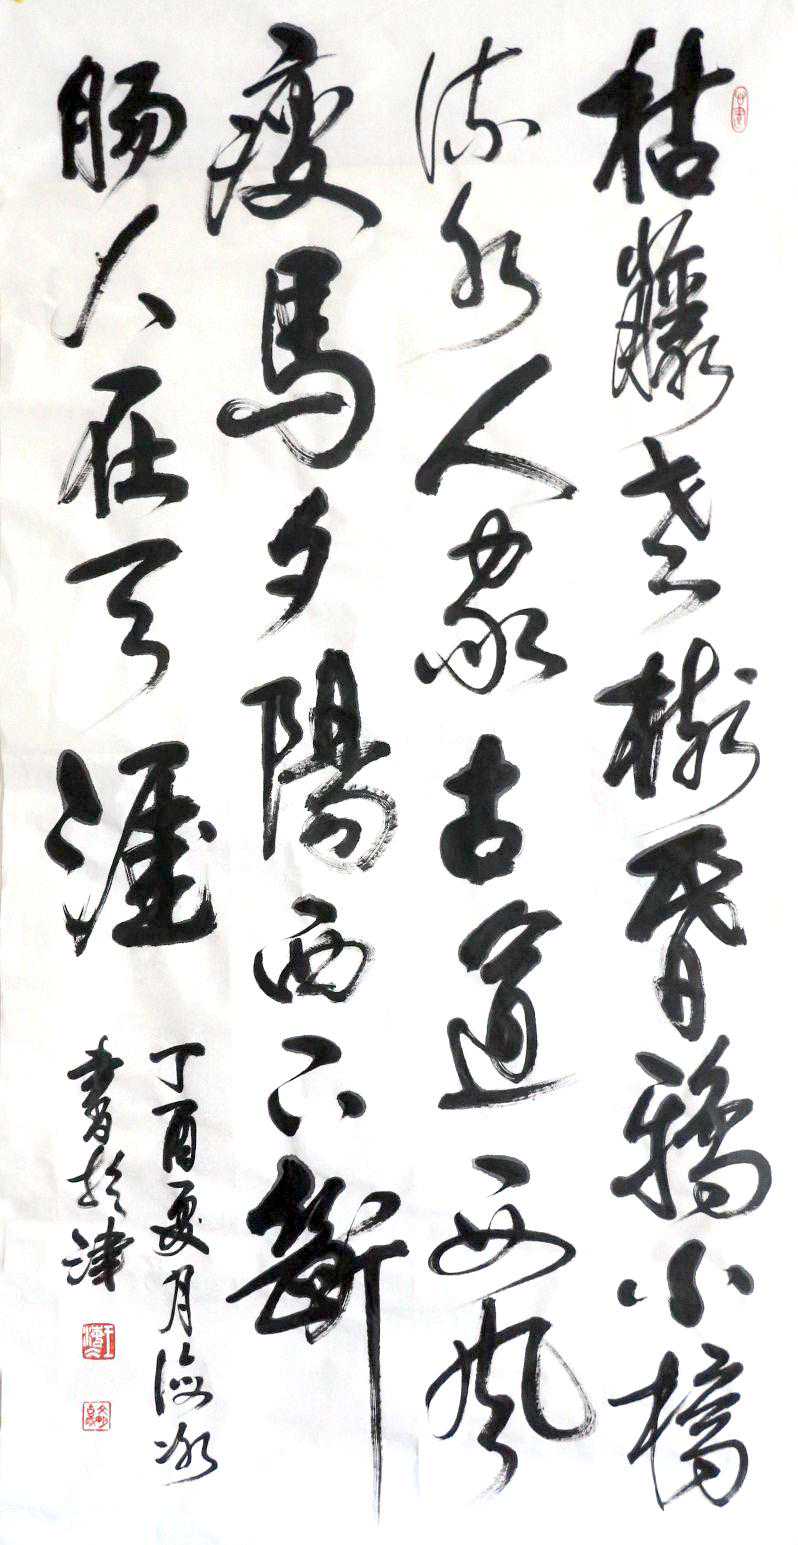 枯藤老樹昏鴉小橋
流水人家古道西風
瘦馬夕陽西下斷
腸人在天涯
丁酉夏月海冰
書於津